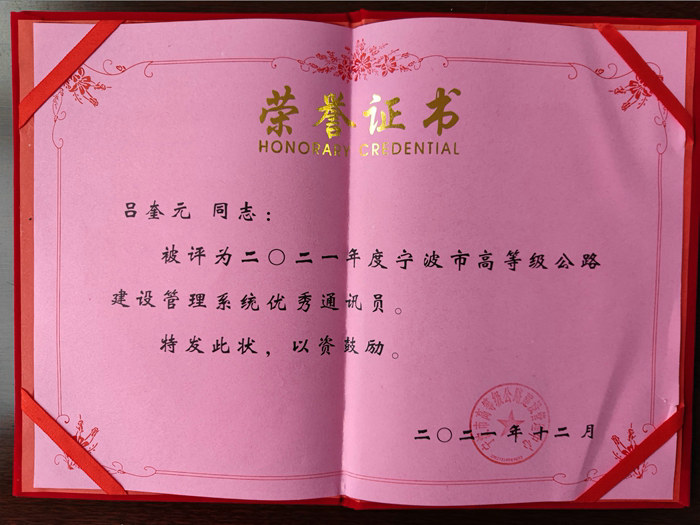 荣誉证书
HONORARY CREDENTIAL
吕奎元 同志：
被评为二〇二一年度宁波市高等级公路
建设管理系统优秀通讯员。
特发此状，以资鼓励。
二〇二一年十二月